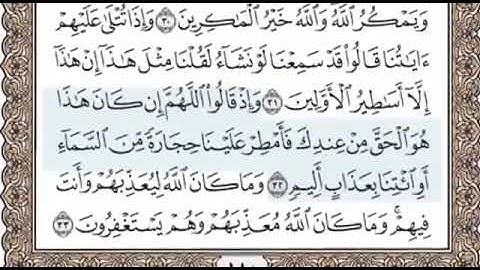 وَيَمْكُرُ ٱللَّهُ وَٱللَّهُ خَيْرُ ٱلْمَـٰكِرِينَ ٣٠ وَإِذَا تُتْلَىٰ عَلَيْهِمْ
ءَايَـٰتُنَا قَالُوا۟ قَدْ سَمِعْنَا لَوْ نَشَآءُ لَقُلْنَا مِثْلَ هَـٰذَآ إِنْ هَـٰذَآ
إِلَّآ أَسَـٰطِيرُ ٱلْأَوَّلِينَ ٣١ وَإِذْ قَالُوا۟ ٱللَّهُمَّ إِن كَانَ هَـٰذَا
هُوَ ٱلْحَقَّ مِنْ عِندِكَ فَأَمْطِرْ عَلَيْنَا حِجَارَةً مِّنَ ٱلسَّمَآءِ
أَوِ ٱئْتِنَا بِعَذَابٍ أَلِيمٍ ٣٢ وَمَا كَانَ ٱللَّهُ لِيُعَذِّبَهُمْ وَأَنتَ
فِيهِمْ ۚ وَمَا كَانَ ٱللَّهُ مُعَذِّبَهُمْ وَهُمْ يَسْتَغْفِرُونَ ٣٣